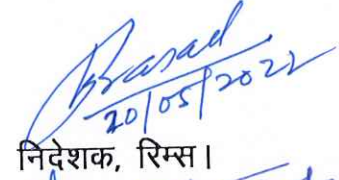 Prasad
20/05/2022
निदेशक, रिम्स।